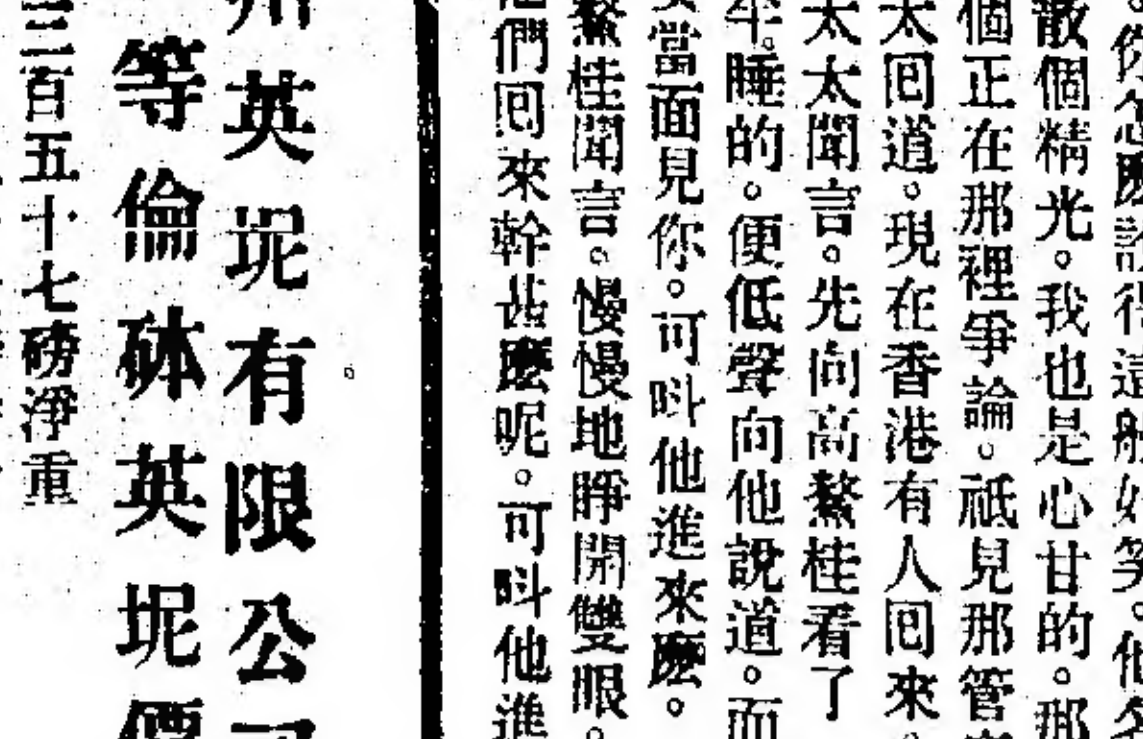 你怎麽說得這般好笑。他
散個精光。我也是心甘的。那
個正在那裡爭論。祇見那管
太囘道。現在香港有人囘來。
太太聞言。先向高鰲桂看了
睡的。便低聲向他說道。而
當面見你。可呌他進來麽。
鰲桂聞言。慢慢地睜開雙眼。
他們囘來幹甚麽呢。可呌他進
州英坭有限公司
等倫砵英坭價
三百五十七磅淨重